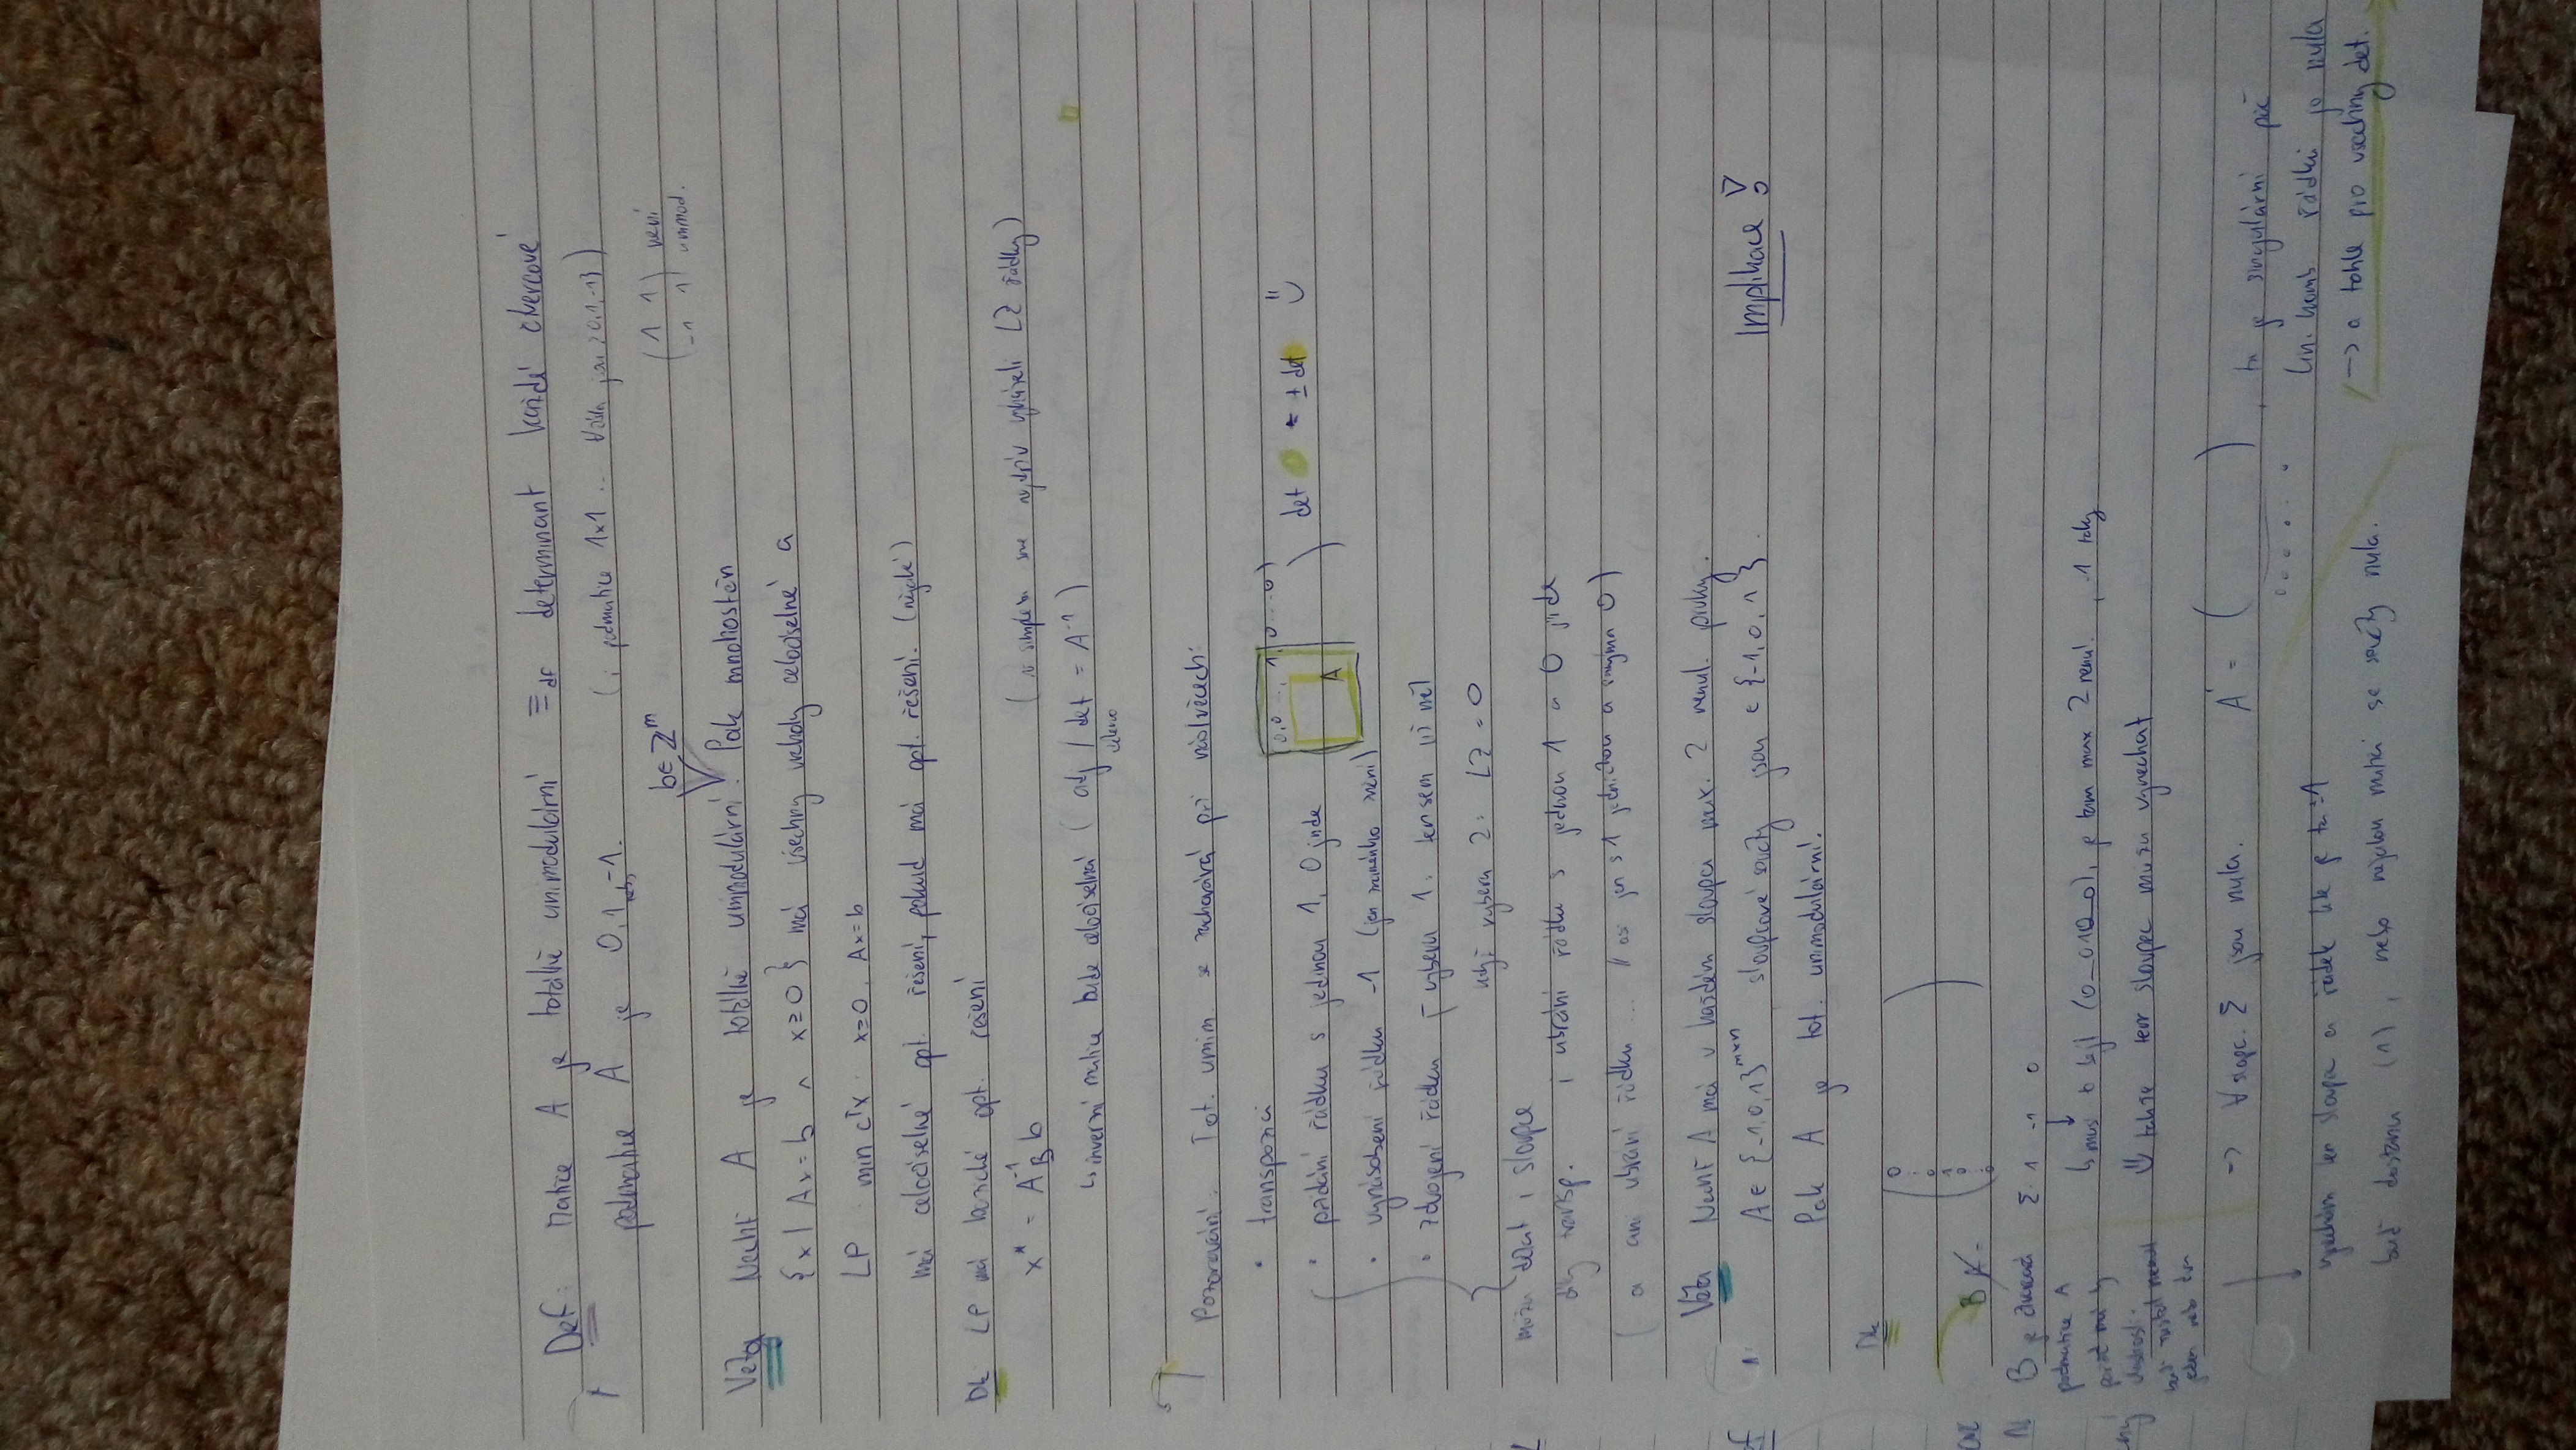 Def: Matice A je totálně unimodulární ≡df determinant každé čtvercové
podmatice A je 0,1 nebo -1. (i podmatice 1×1 ... ∀čísla jsou 0,1,-1)
b∈ℤ^m
(1 1
-1 1) není
unimod.
Věta Nechť A je totálně unimodulární. Pak mnohostěn
{x | Ax = b ∧ x≥0} má všechny vrcholy celočíselné a
LP min c^T x x≥0, Ax=b
má celočíselné opt. řešení, pokud má opt. řešení. (nějaké)
Dk LP má bazické opt. řešení
x* = A_B^-1 b (v simplexu sme nejdřív vyházeli LZ řádky)
↳ inverzní matice bude celočíselná (adj / det = A^-1)
Pozorování: Tot. unim. se zachovává při násl. věcech:
• transpozici
• přidání řádku s jedinou 1, 0 jinde
0,0 ... 1 0 ... 0
A
det = ± det
• vynásobení řádku -1 (jen znaménko mění)
• zdvojení řádku vyberu 1: ten sem již měl
když vyberu 2: LZ = 0
můžu dělat i sloupce
díky transp. i ubrání řádku s jednou 1 a 0 jinde
(a ani ubrání řádku ... // asi jen s 1 jedničkou a samýma 0)
Věta Nechť A má v každém sloupci max. 2 nenul. prvky.
A ∈ {-1,0,1}^m×n sloupcové součty jsou ∈ {-1,0,1}.
Implikace !
Pak A je tot. unimodulární.
Dk
0
:
0
1
0
:
0
B A =
B je čtvercová Σ: 1 -1 0
podmatice A
pořád má ty
vlastnosti.
jeden nebo dva
↳ musí to být (0_010_0), je tam max 2 nenul. , -1 taky
takže tenr sloupec můžu vynechat
→ ∀ sloupc. Σ jsou nula. A' = ( )
0 0 0 . . . 0
, ta je singulární páč
lin. komb řádků je nula
→ a tohle pro všechny det.
vynechám ten sloupec a řádek kde je ta ±1
buď dostanu (1), nebo nějakou matici se součty nula.